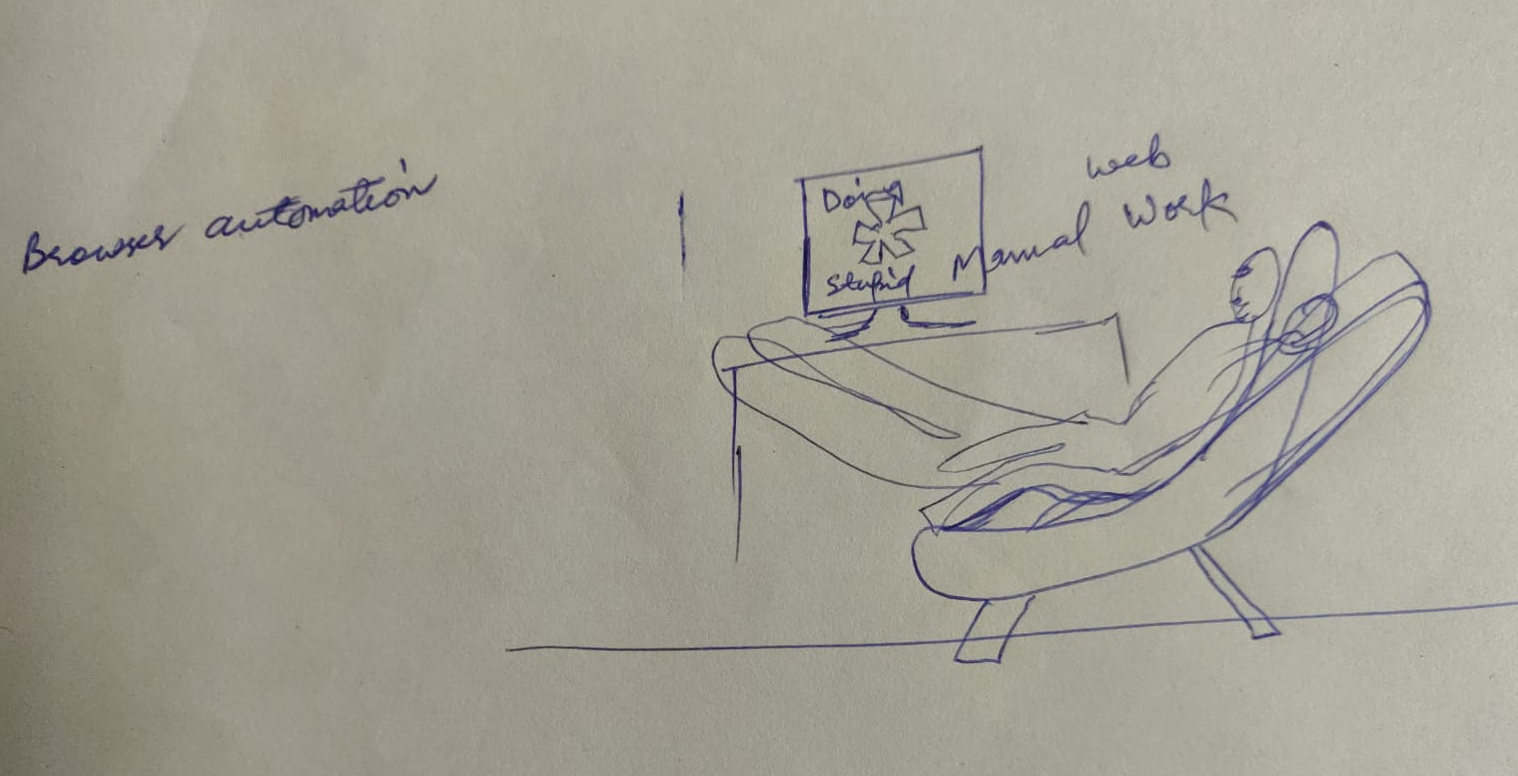 Browser automation
Doing
web
Stupid Manual Work